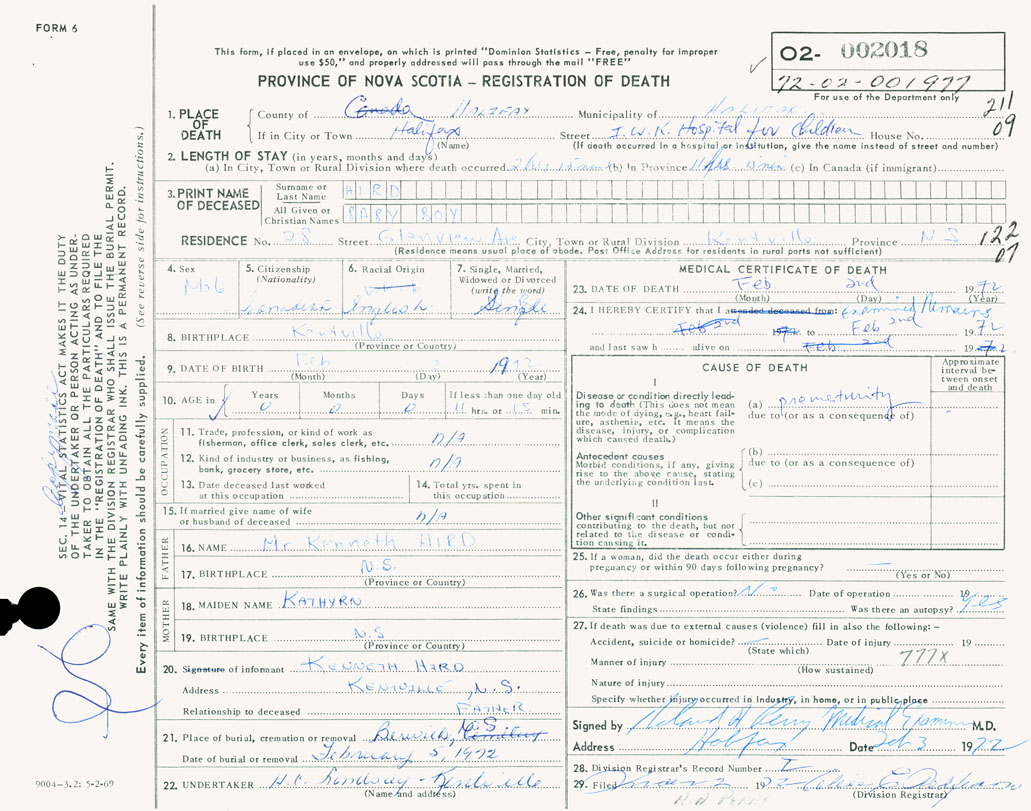 FORM 6
This form, if placed in an envelope, on which is printed "Dominion Statistics – Free, penalty for improper
use $50," and properly addressed will pass through the mail "FREE"
PROVINCE OF NOVA SCOTIA – REGISTRATION OF DEATH
02- 002018
72-02-001977
For use of the Department only
211
09
1. PLACE OF DEATH
County of Canada HALIFAX Municipality of HALIFAX
If in City or Town Halifax Street I.W.K. Hospital for Children House No.
(Name) (If death occurred in a hospital or institution, give the name instead of street and number)
2. LENGTH OF STAY (in years, months and days)
(a) In City, Town or Rural Division where death occurred (b) In Province 11 hrs 15 min (c) In Canada (if immigrant)
3. PRINT NAME OF DECEASED
Surname or Last Name HIRD
All Given or Christian Names BABY BOY
RESIDENCE No. 28 Street Glenview Ave City, Town or Rural Division Kentville Province NS
(Residence means usual place of abode. Post Office Address for residents in rural parts not sufficient)
122
07
4. Sex Male
5. Citizenship (Nationality) Canadian
6. Racial Origin English
7. Single, Married, Widowed or Divorced (write the word) Single
8. BIRTHPLACE Kentville
(Province or Country)
9. DATE OF BIRTH Feb 1972
(Month) (Day) (Year)
10. AGE in Years 0 Months 0 Days 0 If less than one day old 11 hrs. or 15 min.
OCCUPATION
11. Trade, profession, or kind of work as fisherman, office clerk, sales clerk, etc. n/A
12. Kind of industry or business, as fishing, bank, grocery store, etc. n/A
13. Date deceased last worked at this occupation
14. Total yrs. spent in this occupation
15. If married give name of wife or husband of deceased n/A
FATHER
16. NAME Mr Kenneth HIRD
17. BIRTHPLACE N.S.
(Province or Country)
MOTHER
18. MAIDEN NAME KATHYRN
19. BIRTHPLACE N.S
(Province or Country)
20. Signature of informant KENNETH HIRD
Address KENTVILLE, N.S.
Relationship to deceased FATHER
21. Place of burial, cremation or removal Berwick, N.S Cemetery
Date of burial or removal February 5, 1972
22. UNDERTAKER H.C. Lindsay - Kentville
(Name and address)
MEDICAL CERTIFICATE OF DEATH
23. DATE OF DEATH Feb 2nd 1972
(Month) (Day) (Year)
24. I HEREBY CERTIFY that I attended deceased from: Examined Remains
Feb 2nd 1972 to Feb 2nd 1972
and last saw h alive on Feb 2nd 1972
CAUSE OF DEATH
Approximate interval between onset and death
I
Disease or condition directly leading to death (This does not mean the mode of dying, e.g., heart failure, asthenia, etc. It means the disease, injury, or complication which caused death.)
(a) prematurity
due to (or as a consequence of)
Antecedent causes
Morbid conditions, if any, giving rise to the above cause, stating the underlying condition last.
(b)
due to (or as a consequence of)
(c)
II
Other significant conditions contributing to the death, but not related to the disease or condition causing it.
25. If a woman, did the death occur either during
pregnancy or within 90 days following pregnancy? —
(Yes or No)
26. Was there a surgical operation? No Date of operation 19
State findings Was there an autopsy? Yes
27. If death was due to external causes (violence) fill in also the following: –
Accident, suicide or homicide? Date of injury 19
(State which)
Manner of injury 777X
(How sustained)
Nature of injury
Specify whether injury occurred in Industry, in home, or in public place
Signed by Roland H Perry Medical Examiner M.D.
Address Halifax Date Feb 3 1972
28. Division Registrar's Record Number
29. Filed 19
(Division Registrar)
SEC. 14 – VITAL STATISTICS ACT MAKES IT THE DUTY
OF THE UNDERTAKER OR PERSON ACTING AS UNDER-
TAKER TO OBTAIN ALL THE PARTICULARS REQUIRED
IN THE "REGISTRATION OF DEATH" AND TO FILE THE
SAME WITH THE DIVISION REGISTRAR WHO SHALL ISSUE THE BURIAL PERMIT.
WRITE PLAINLY WITH UNFADING INK. THIS IS A PERMANENT RECORD.
Every item of information should be carefully supplied. (See reverse side for instructions.)
9004–3.2: 5-2-69